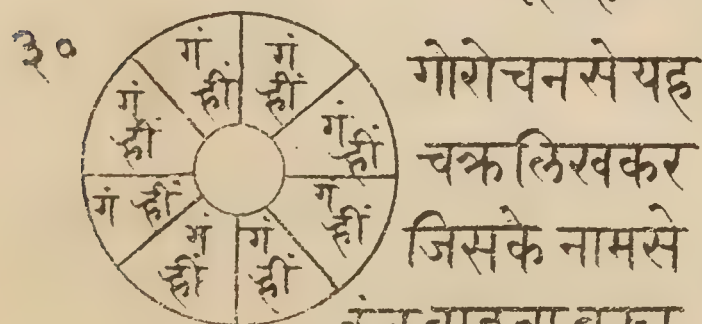 ३०
गं ह्रीं
गं ह्रीं
गं ह्रीं
गं ह्रीं
गं ह्रीं
गं ह्रीं
गं ह्रीं
गं ह्रीं
गोरोचन से यह
चक्र लिखकर
जिसके नामसे